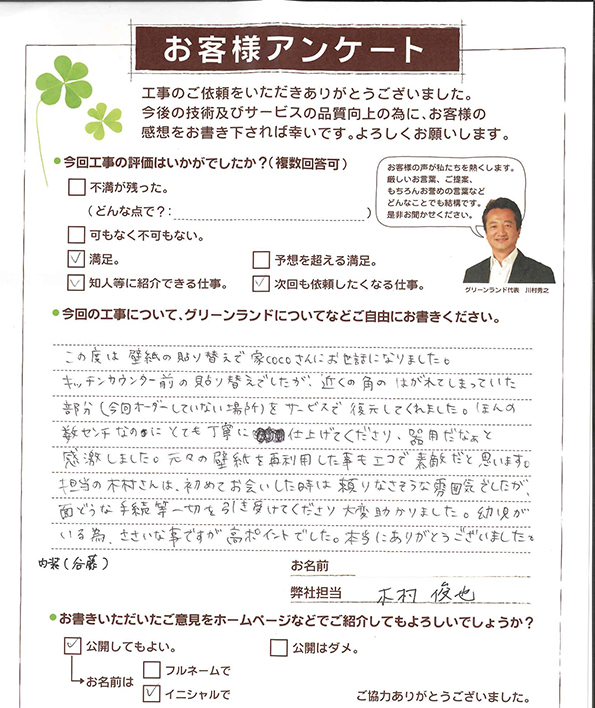 お客様アンケート
工事のご依頼をいただきありがとうございました。
今後の技術及びサービスの品質向上の為に、お客様の
感想をお書き下されば幸いです。よろしくお願いします。
●今回工事の評価はいかがでしたか?(複数回答可)
不満が残った。
(どんな点で?: )
可もなく不可もない。
満足。
予想を超える満足。
知人等に紹介できる仕事。
次回も依頼したくなる仕事。
お客様の声が私たちを熱くします。
厳しいお言葉、ご提案、
もちろんお誉めの言葉など
どんなことでも結構です。
是非お聞かせください。
グリーンランド代表 川村秀之
●今回の工事について、グリーンランドについてなどご自由にお書きください。
この度は 壁紙の貼り替えで 家cocoさんにお世話になりました。
キッチンカウンター前の貼り替えでしたが、近くの角の はがれてしまっていた
部分(今回オーダーしていない場所)をサービスで 復元してくれました。ほんの
数センチなのにとても丁寧に 仕上げてくださり、器用だなぁと
感激しました。元々の壁紙を再利用した事もエコで素敵だと思います。
担当の木村さんは、初めてお会いした時は 頼りなさそうな雰囲気でしたが、
面どうな手続等一切を引き受けてくださり大変助かりました。幼児が
いる為、ささいな事ですが高ポイントでした。本当にありがとうございました。
内装(谷藤)
お名前
弊社担当 木村 俊也
●お書きいただいたご意見をホームページなどでご紹介してもよろしいでしょうか?
公開してもよい。
公開はダメ。
お名前は
フルネームで
イニシャルで
ご協力ありがとうございました。